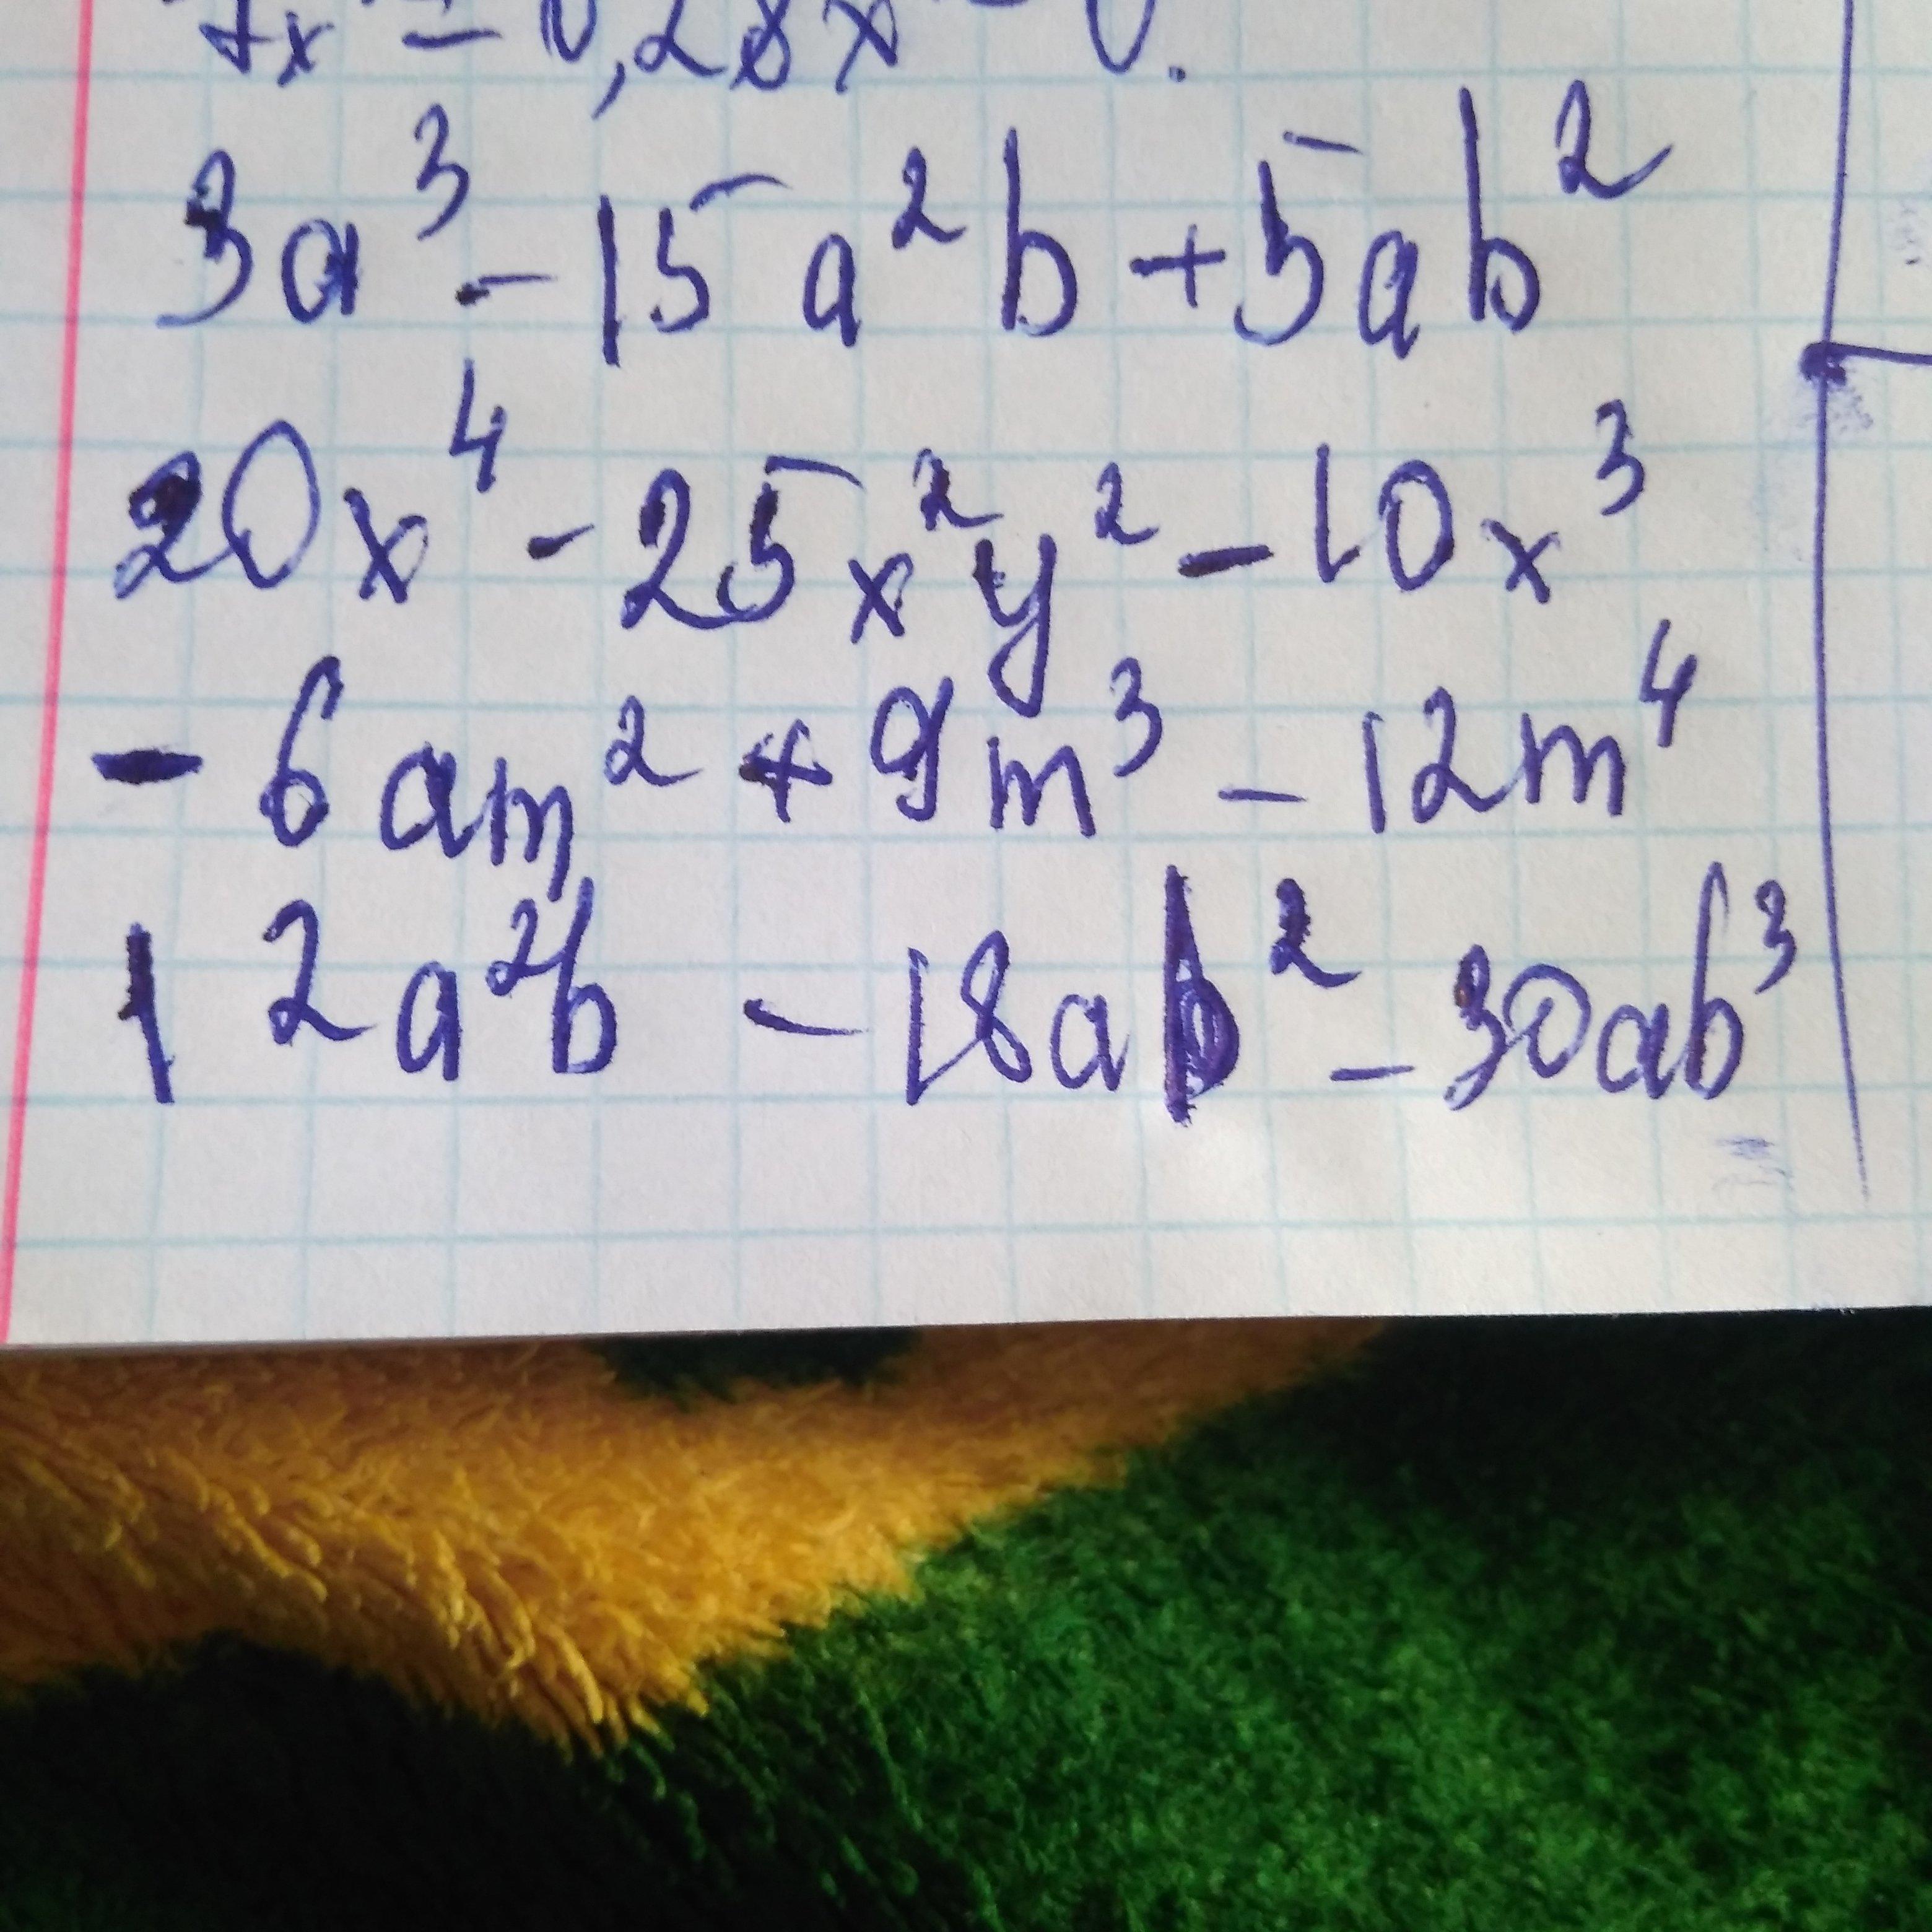 3a³ - 15a²b + 5ab²
20x⁴ - 25x²y² - 10x³
- 6am² + 9m³ - 12m⁴
12a²b - 18ab² - 30ab³